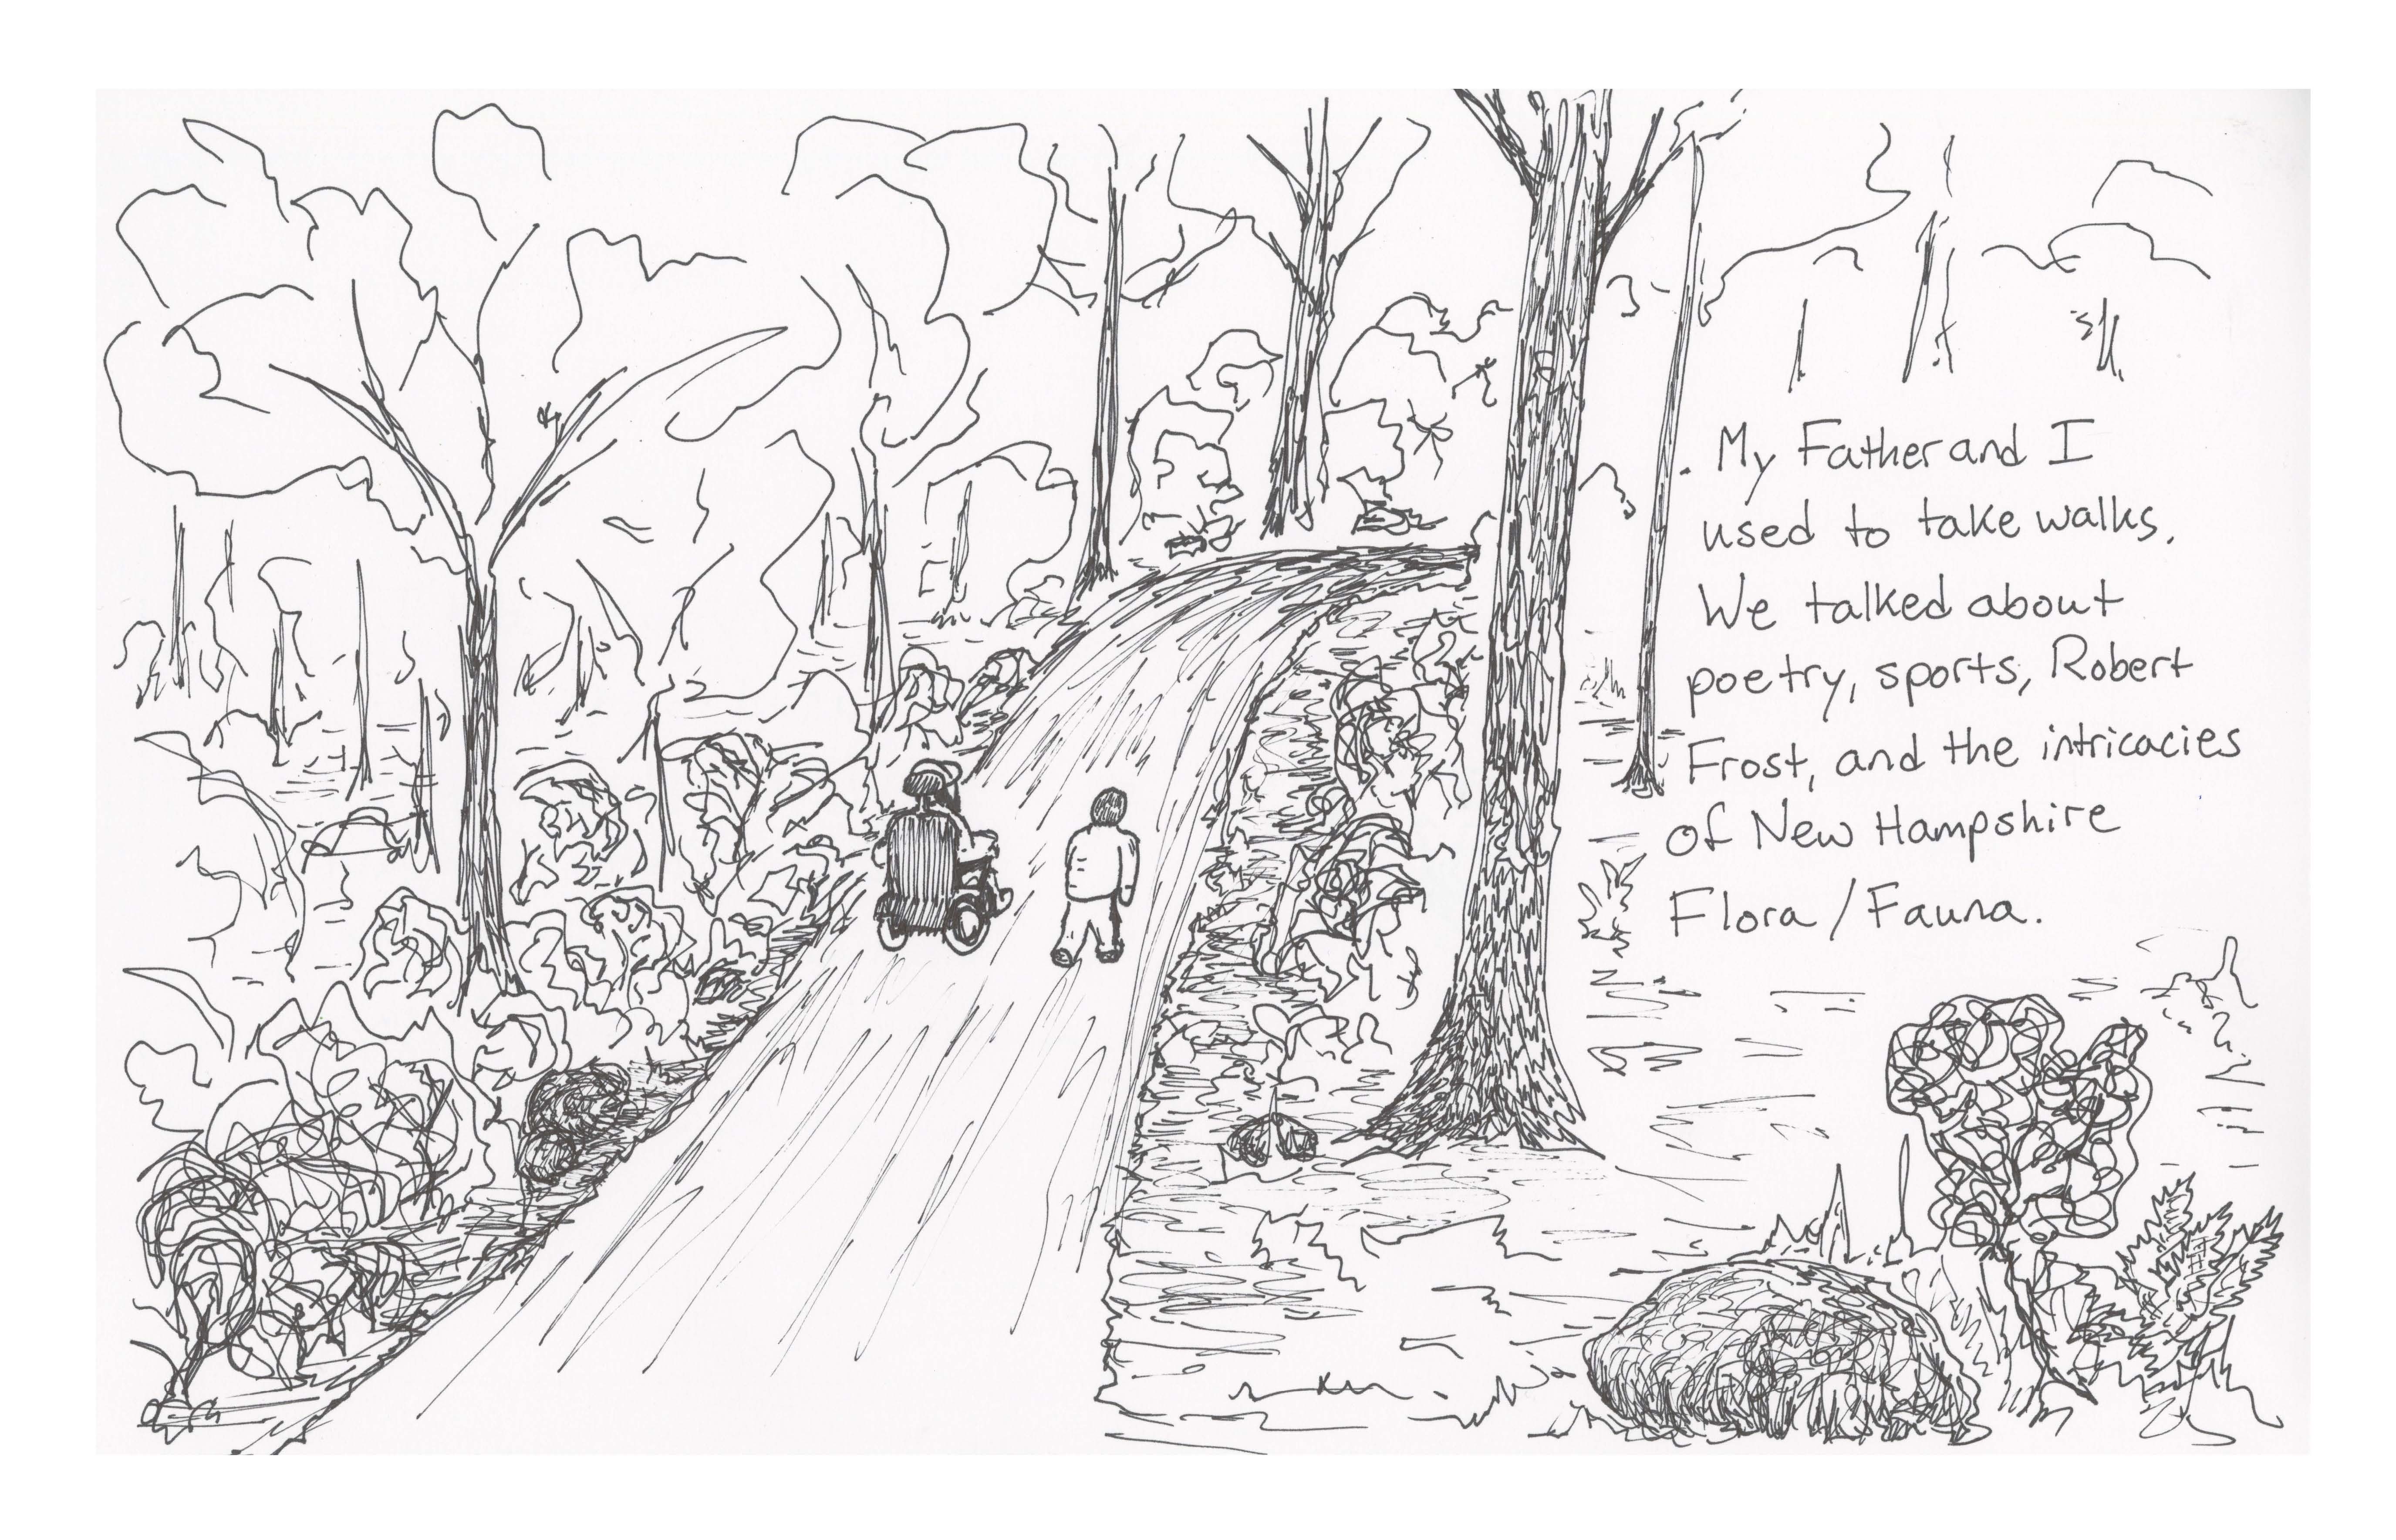 My Father and I
used to take walks.
We talked about
poetry, sports, Robert
Frost, and the intricacies
of New Hampshire
Flora / Fauna.